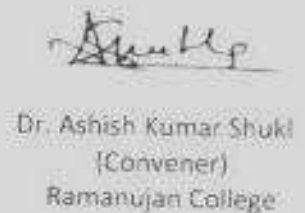 Dr. Ashish Kumar Shukl
(Convener)
Ramanujan College